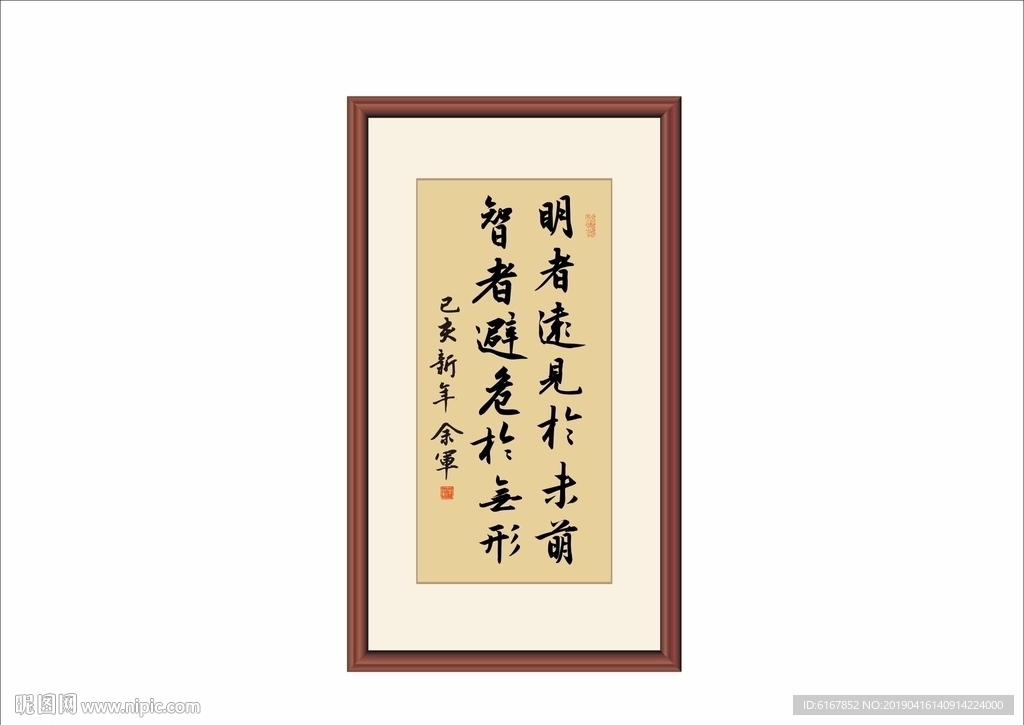 明者遠見於未萌
智者避危於無形
己亥新年 余軍
昵图网 www.nipic.com
ID:6167852 NO:20190416140914224000